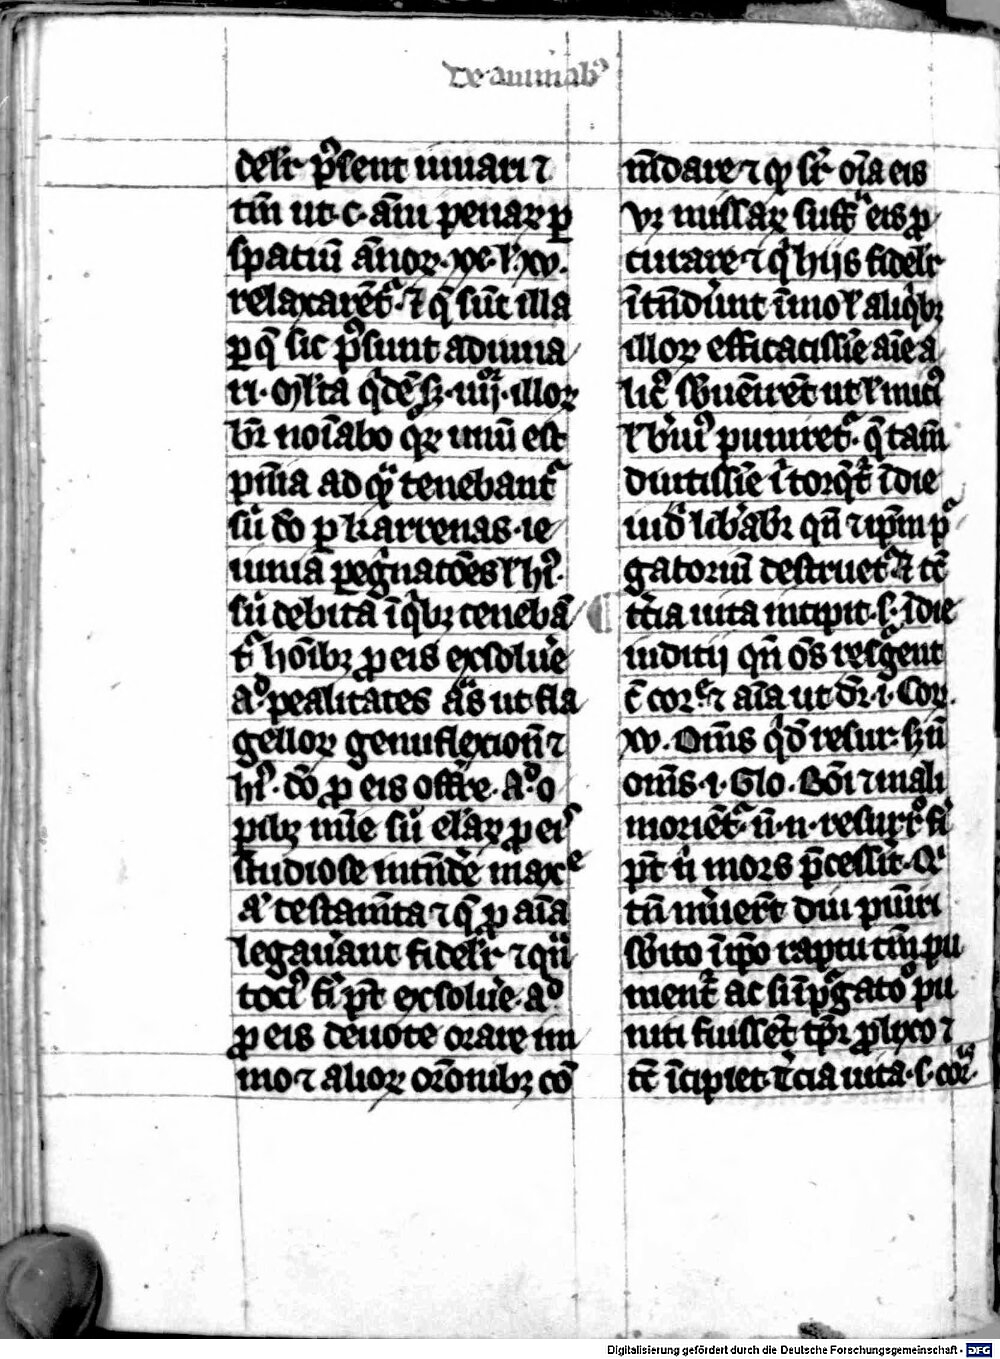 de animab᷒
delr̄ p᷒sent iuuari ⁊
tm̄ ut · c · aīm penaꝝ ꝑ
spatiū ānoꝝ · xx · l' · xv ·
relaxarēt᷑ · ⁊ q̄ sūt illa
ꝑ q̄ sic p᷒sunt ad iuua
ri · Ml'ta q'dē sꝫ · iiij · illoꝝ
bn̄ noīabo qꝝ unū est
pn̄ia ad qᷓ tenebant᷑
sū do ꝑ karrenas · ie
iunia peg'natōes l' hꝰ ·
sū debita ī q'bꝫ tenebā
t᷑ hoībꝫ ꝓ eis exsolu'e
Aº pealitates aᷓs ut fla
gelloꝝ genuflexion̄ ⁊
hꝰ · dō ꝓ eis offr̄e · Aº o
pibꝫ mīe sū elāꝝ ꝓ eiꝰ
studiose intn̄dē maxᵉ
A' testam̄ta ⁊ q̄ ꝓ aīa
legau'ant fidelr̄ ⁊ qn̄
tociꝰ fi' pt̄ exsolu'e · Aº
ꝓ eis deuote orare im
mo ⁊ alioꝝ orōnibꝫ cō
m̄dare ⁊ qꝫ sr̄ oīa eis
vꝫ missaꝝ suffᷓ eis ꝓ
curare ⁊ q' hijs fidelr̄
ītn̄du'nt īmo l' aliq'bꝫ
illoꝝ efficacissīe aīe a
lic' sb'uēirēt ut l' miciꝰ
l' b'uiꝰ puniret᷑ · q̄ tam̄
diutissīe ī torq̄t᷑ ī die
iud' lib'abr̄ qn̄ ⁊ ip̄m p᷑
gatoriū destruet᷑ Et tc̄
t'cia uita incipit · s · ī die
iudicij qn̄ oēs resg̃ent
c̄ corꝑe ⁊ aīa ut dr̄ · i · Cor ·
xv · Om̄s q'd resur · sꝫ n̄
om̄s · i · Glo · Bōi ⁊ mali
moriēt᷑ · n̄ · n · resurrº fi'
pt̄ n' mors p̄cessit̄ · Q'
tn̄ m'uer̄t diu pun̄iri
sb'ito ī ip̄o raptu tm̄ pu
nient᷑ ac si ī p᷑gatoº pu
niti fuissēt tp̄r ꝓlixo ⁊
tc̄ īcipiet · t'cia uita · s · cor᷑ ·
Digitalisierung gefördert durch die Deutsche Forschungsgemeinschaft - DFG